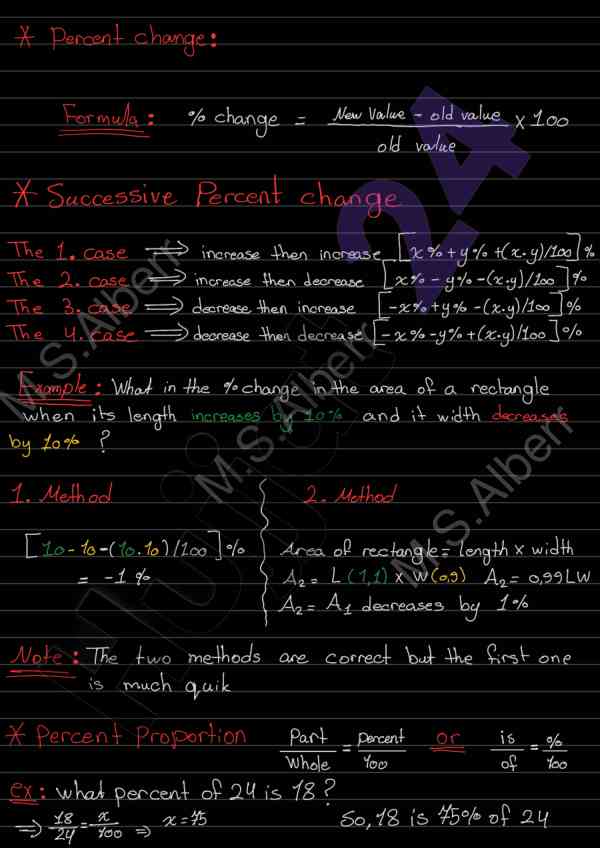 * Percent change:
Formula: % change = (New Value - old value) / old value × 100
* Successive Percent change
The 1. case ⟹ increase then increase [x%+y%+(x.y)/100]%
The 2. case ⟹ increase then decrease [x%-y%-(x.y)/100]%
The 3. case ⟹ decrease then increase [-x%+y%-(x.y)/100]%
The 4. case ⟹ decrease then decrease [-x%-y%+(x.y)/100]%
Example: What in the % change in the area of a rectangle
when its length increases by 10% and it width decreases
by 10% ?
1. Method
[10-10-(10.10)/100]%
= -1%
2. Method
Area of rectangle = length × width
A₂ = L(1,1) × W(0,9) A₂ = 0,99LW
A₂ = A₁ decreases by 1%
Note: The two methods are correct but the first one
is much quik
* Percent Proportion Part/Whole = percent/100 or is/of = %/100
ex: what percent of 24 is 18?
⟹ 18/24 = x/100 ⟹ x=75 So, 18 is 75% of 24
M.S.Albert
M.S.Albert
M.S.Albert
24